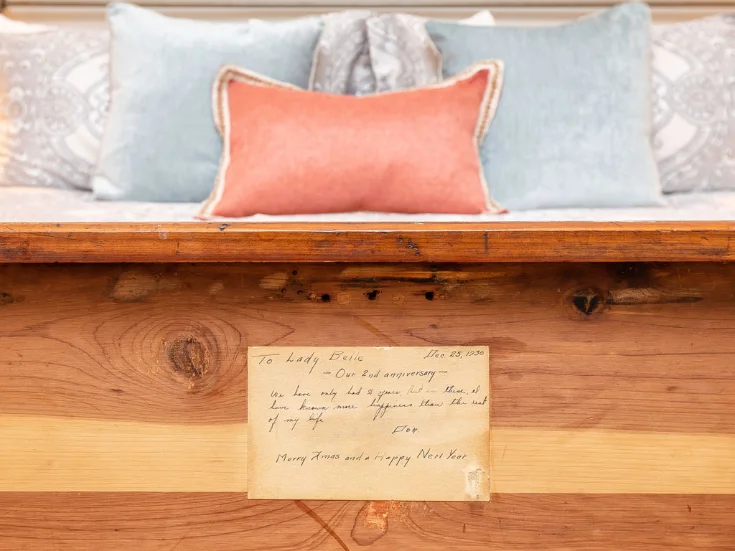 To Lady Belle
Dec 25, 1930
— Our 2nd anniversary —
We have only had 2 years but in these, I
have known more happiness than the rest
of my life
Don
Merry Xmas and a Happy New Year